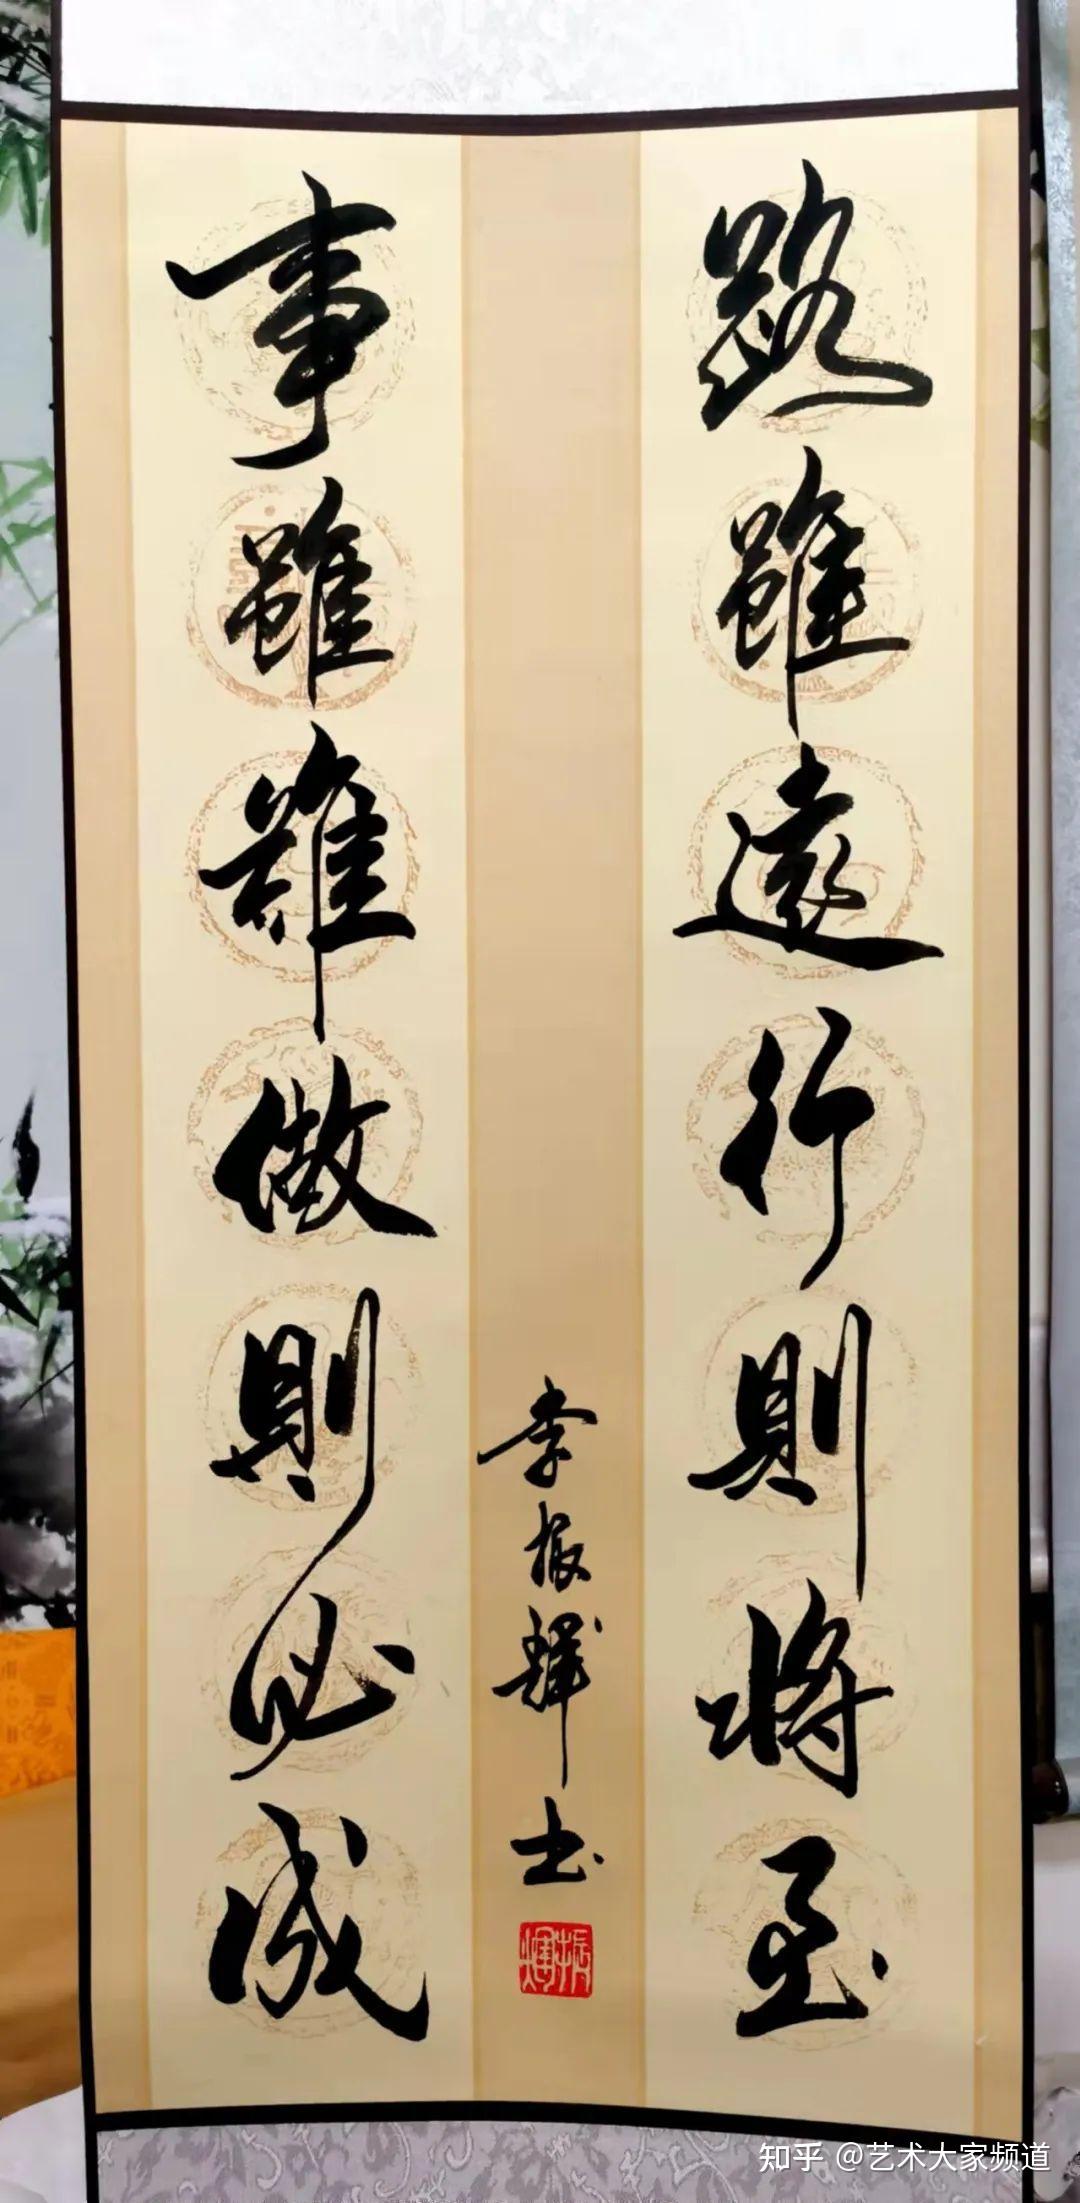 路雖遠行則將至
事雖難做則必成
李振輝书
振輝
知乎 @艺术大家频道